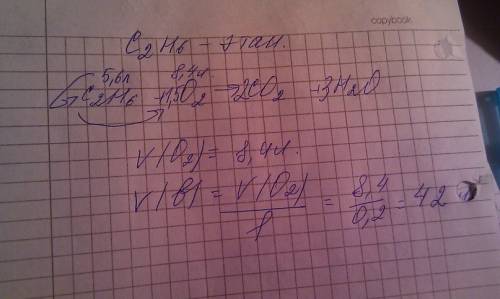 copybook
C₂H₆ – этан.
5,6л 8,4л
C₂H₆ + 1,5O₂ → 2CO₂ + 3H₂O
V(O₂) = 8,4л.
V(В) = V(O₂)/φ = 8,4/0,2 = 42